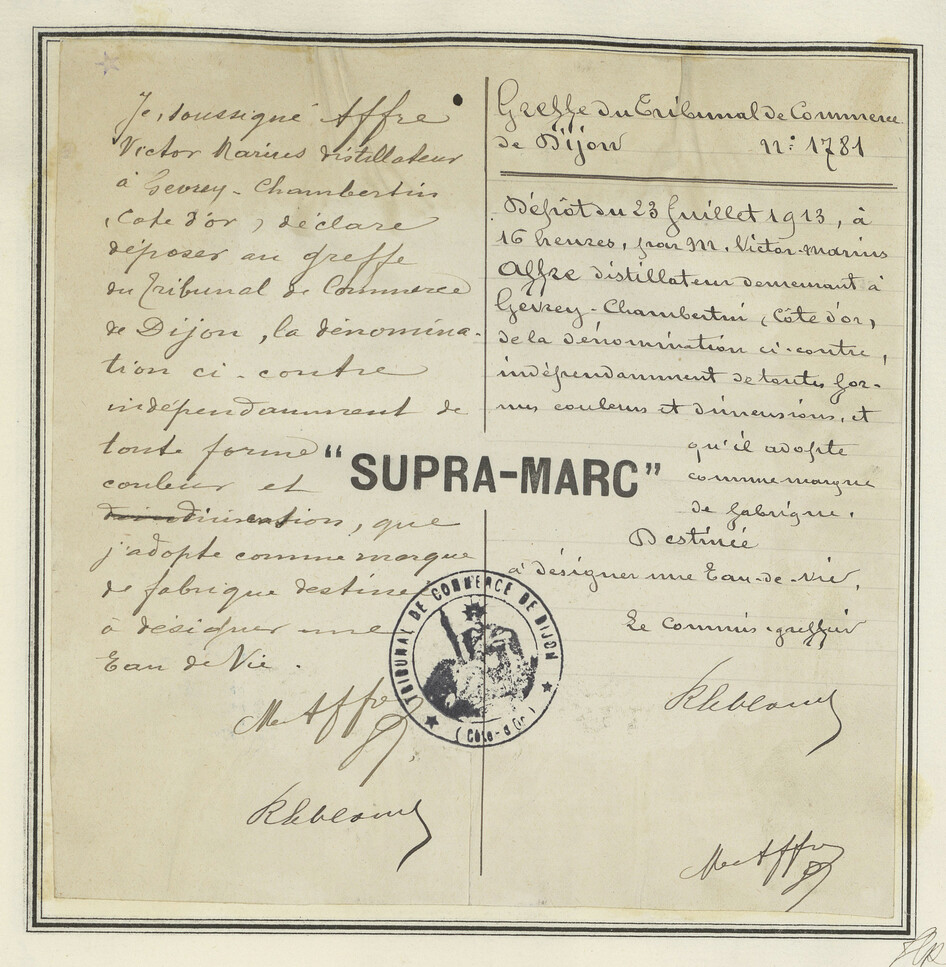 Je, soussigné Affre
Victor Marius distillateur
à Gevrey-Chambertin
(Côte d'or) déclare
déposer au greffe
du Tribunal de Commerce
de Dijon, la dénomina-
tion ci-contre
indépendamment de
toute forme
couleur et
dimension, que
j'adopte comme marque
de fabrique destinée
à désigner une
Eau de Vie.
Mus Affre
"SUPRA-MARC"
TRIBUNAL DE COMMERCE DE DIJON
(Côte-d'Or)
Greffe du Tribunal de Commerce
de Dijon n: 1781
Dépôt du 23 Juillet 1913, à
16 heures, par M. Victor-Marius
Affre distillateur demeurant à
Gevrey-Chambertin, (Côte d'or,
de la dénomination ci-contre,
indépendamment de toutes for-
mes couleurs et dimensions, et
qu'il adopte
comme marque
de fabrique.
Destinée
à désigner une Eau-de-Vie.
Le Commis-greffier